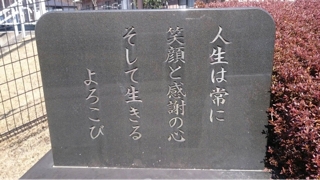 人生は常に
笑顔と感謝の心
そして生きる
よろこび